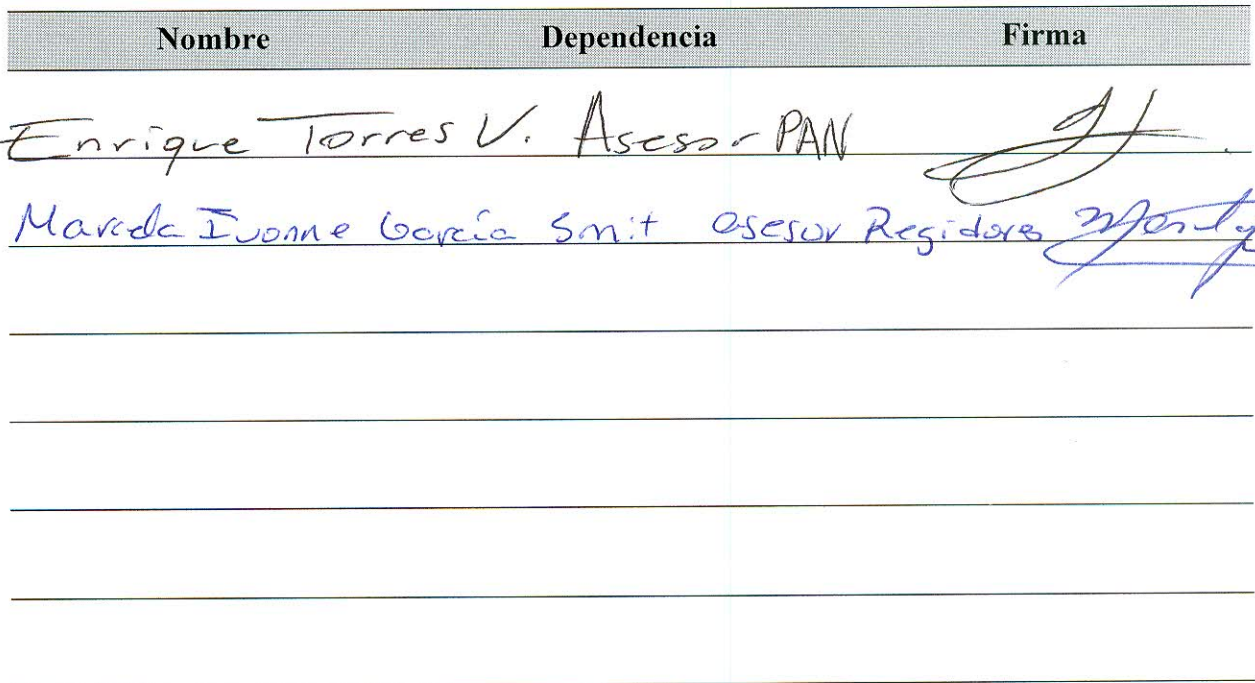 Nombre Dependencia Firma
Enrique Torres V. Asesor PAN
Marcela Ivonne García Smit asesor Regidores